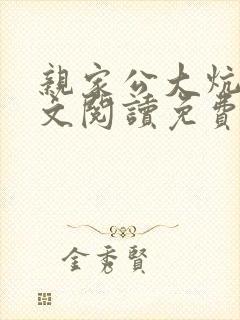 親家公大炕
文閱讀免費
金秀賢